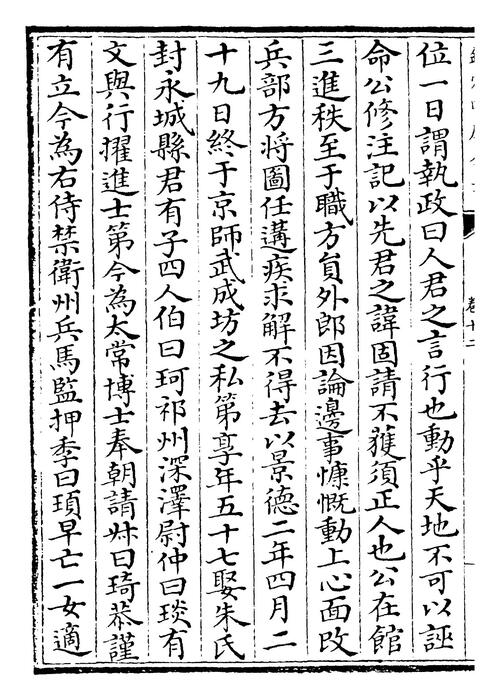 位一日謂執政曰人君之言行也動乎天地不可以誣
命公修注記以先君之諱固請不獲須正人也公在館
三進秩至于職方貟外郎因論邊事慷慨動上心面改
兵部方將圖任遘疾求解不得去以景德二年四月二
十九日終于京師武成坊之私第享年五十七娶朱氏
封永城縣君有子四人伯曰珂祁州深澤尉仲曰琰有
文與行擢進士第今為太常博士奉朝請叔曰琦恭謹
有立今為右侍禁衛州兵馬監押季曰頊早亡一女適
卷十二